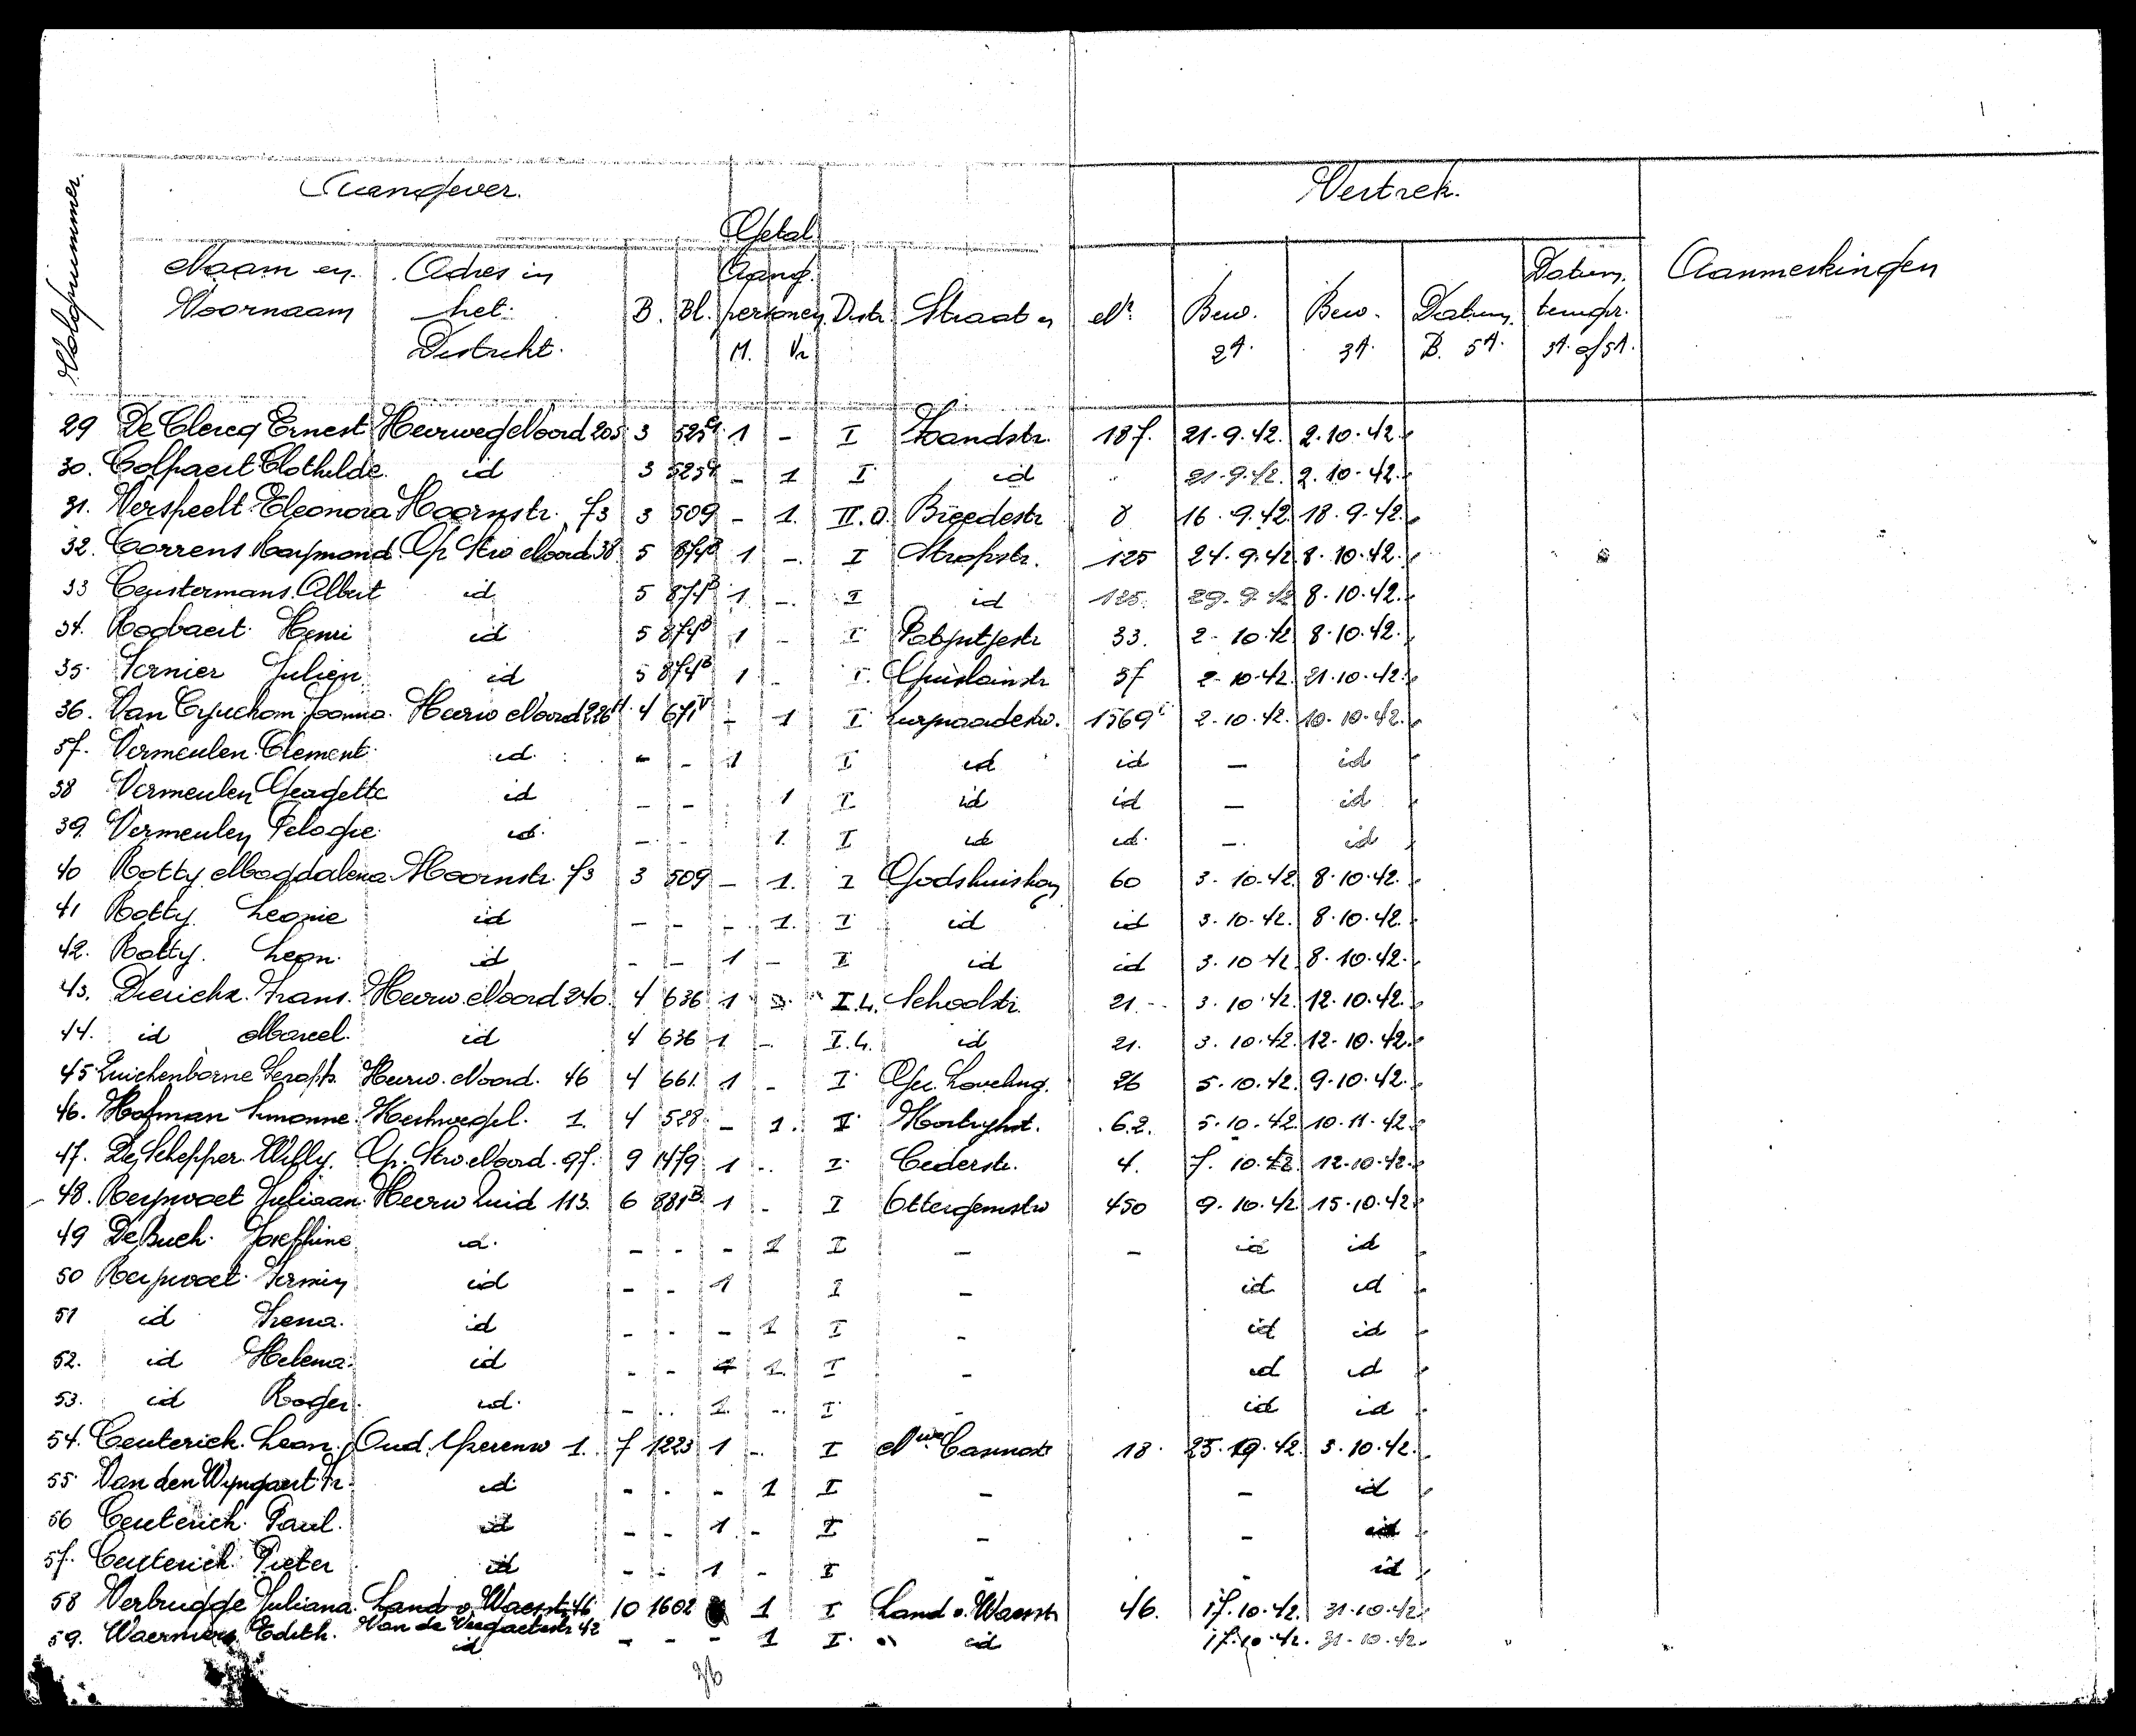 Volgnummer.
Aangever.
Vertrek.
Getal
Naam en Adres in Aang. Datum. Aanmerkingen
Voornaam het B. Bl. personen Distr. Straat Nr Bew. Bew. Datum tempr.
Distrikt. M. Vr 2A. 3A. B. 5A. 3A of 5A.
29 De Clercq Ernest Heerweg Noord 205 3 525 1 - I Zandstr. 187. 21.9.42. 2.10.42.
30. Colpaert Clothilde id 3 525 - 1 I id 21.9.42. 2.10.42.
31. Verspeelt Eleonora Hoornstr. 73 3 509 - 1. II.O. Breedestr 8 16.9.42 18.9.42.
32. Correns Raymond. Gr Stw Noord 38 5 874B 1 - I Stropstr. 125 24.9.42 8.10.42.
33 Ceustermans Albert id 5 874B 1 - I id 125 29.9.42 8.10.42.
34. Rogbaert Henri id 5 874B 1 - I 33. 2-10.42 8.10.42.
35. Julien id 5 874B 1 - I. Guislainstr 37 2-10.42. 21.10.42.
36. Van Joanna. Heerw Noord 226 4 671 - 1 I 1569 2.10.42. 10.10.42.
37. Vermeulen Clement id - - 1 I id id - id
38 Vermeulen id - - 1 I id id - id
39. Vermeulen Pelagie id. - 1. I id id. -. id
40 Rotty Magdalena Hoornstr. 73 3 509 - 1. I Godshuisham 60 3.10.42 8.10.42.
41 Rotty Leonie id - - - 1. I id id 3.10.42. 8.10.42.
42. Rotty. Leon. id - - 1 - I id id 3.10 42. 8.10.42.
43. Dierickx. Frans. Heerw. Noord 240. 4 636 1 I.L. Schoolstr. 21 - 3.10.42. 12.10.42.
44. id Marcel. id 4 636 1 - I.L. id 21. 3.10.42. 12.10.42.
45 Zuickenborne Serafh. Heerw. Noord. 46 4 661. 1 - I Gez. Loveling. 26 5.10.42. 9.10.42.
46. Hofman Simonne. 1. 4 528 - 1. 62. 5.10.42. 10.11.42.
47. De Schepper Willy. Gr. Stw. Noord. 97. 9 1479 1 - I Cederstr. 4. 7.10.42. 12.10.42.
48. Reyvoet Juliaan. Heerw Zuid 113. 6 881B 1 - I Ottergemstw 450 9.10.42. 15.10.42
49 De Buck. Josephine id. - - - 1 I - - id id
50 Reyvoet Firmin id - - 1 I - id id
51 id Irena. id - - - 1 I - id id
52. id Helena. id - - 1. I - id id
53. id Roger. id. - - 1. - I - id id
54. Ceuterick. Leon. Oud. Yperenw 1. 7 1223 1 - I 18. 3.10.42.
55 Van den Wyngaert Fr. id - - - 1 I - - id
56 Ceuterick Paul. id - - 1 - I - - id
57. Ceuterick Pieter id - - 1 - I - id
58 Verbrugge Juliana. Land v. Waesstr. 46 10 1602 1 I Land v. Waesstr 46. 17.10.42. 31.10.42.
Van de 42
59. Edith. id - - - 1 I id 17.10.42. 31.10.42.